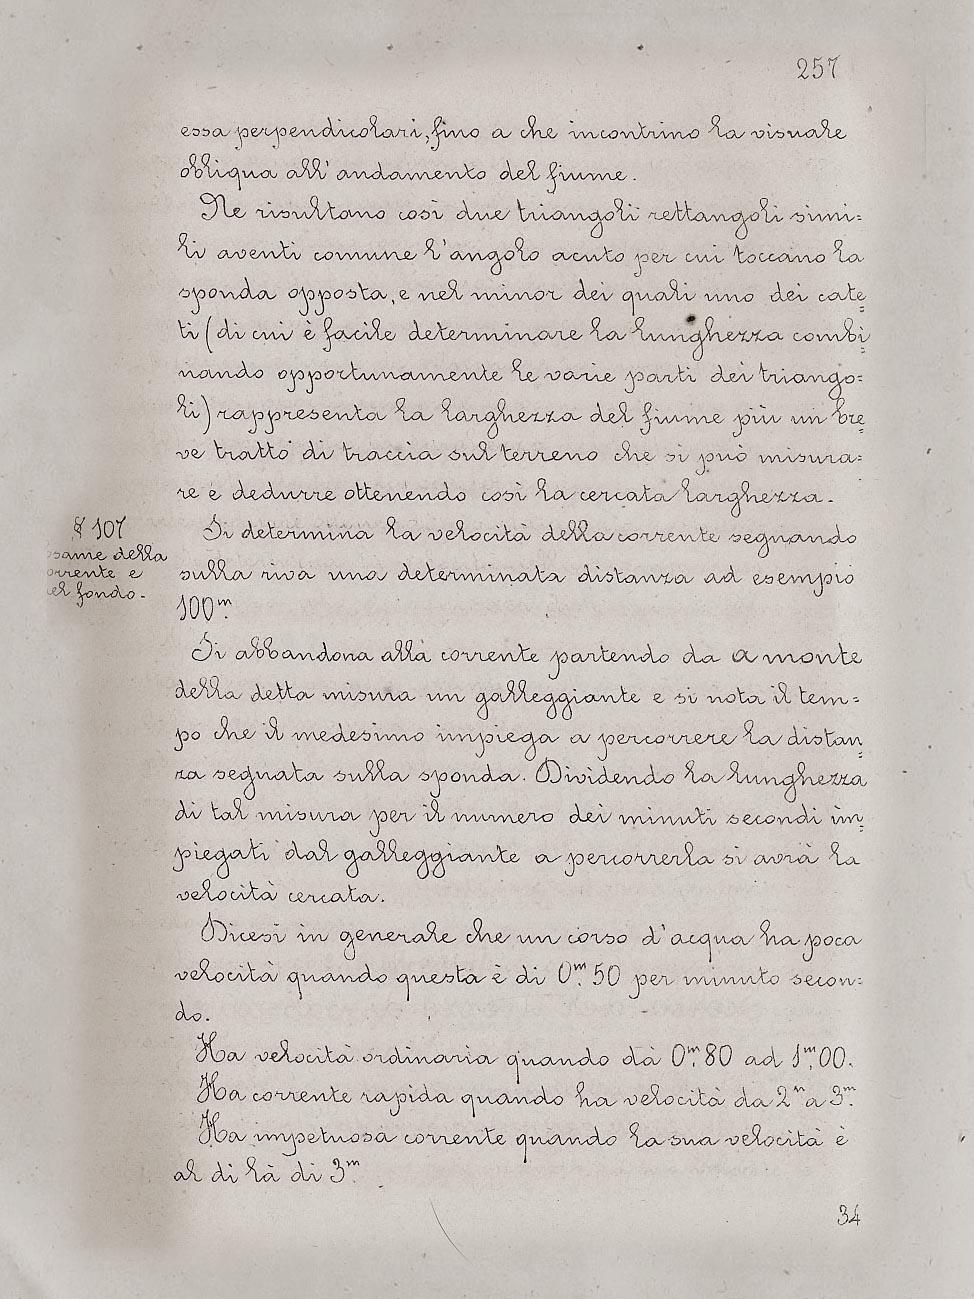 257
essa perpendicolari, fino a che incontrino la visuale
obliqua all'andamento del fiume.
Ne risultano così due triangoli rettangoli simi=
li aventi comune l'angolo acuto per cui toccano la
sponda opposta, e nel minor dei quali uno dei cate=
ti (di cui è facile determinare la lunghezza combi=
nando opportunamente le varie parti dei triango=
li) rappresenta la larghezza del fiume più un bre=
ve tratto di traccia sul terreno che si può misura=
re e dedurre ottenendo così la cercata larghezza.
§ 107
same della
orrente e
el fondo.
Si determina la velocità della corrente segnando
sulla riva una determinata distanza ad esempio
100m.
Si abbandona alla corrente partendo da a monte
della detta misura un galleggiante e si nota il tem=
po che il medesimo impiega a percorrere la distan=
za segnata sulla sponda. Dividendo la lunghezza
di tal misura per il numero dei minuti secondi im=
piegati dal galleggiante a percorrerla si avrà la
velocità cercata.
Dicesi in generale che un corso d'acqua ha poca
velocità quando questa è di 0m.50 per minuto secon=
do.
Ha velocità ordinaria quando da 0m.80 ad 1m.00.
Ha corrente rapida quando ha velocità da 2m a 3m.
Ha impetuosa corrente quando la sua velocità è
al di là di 3m.
34